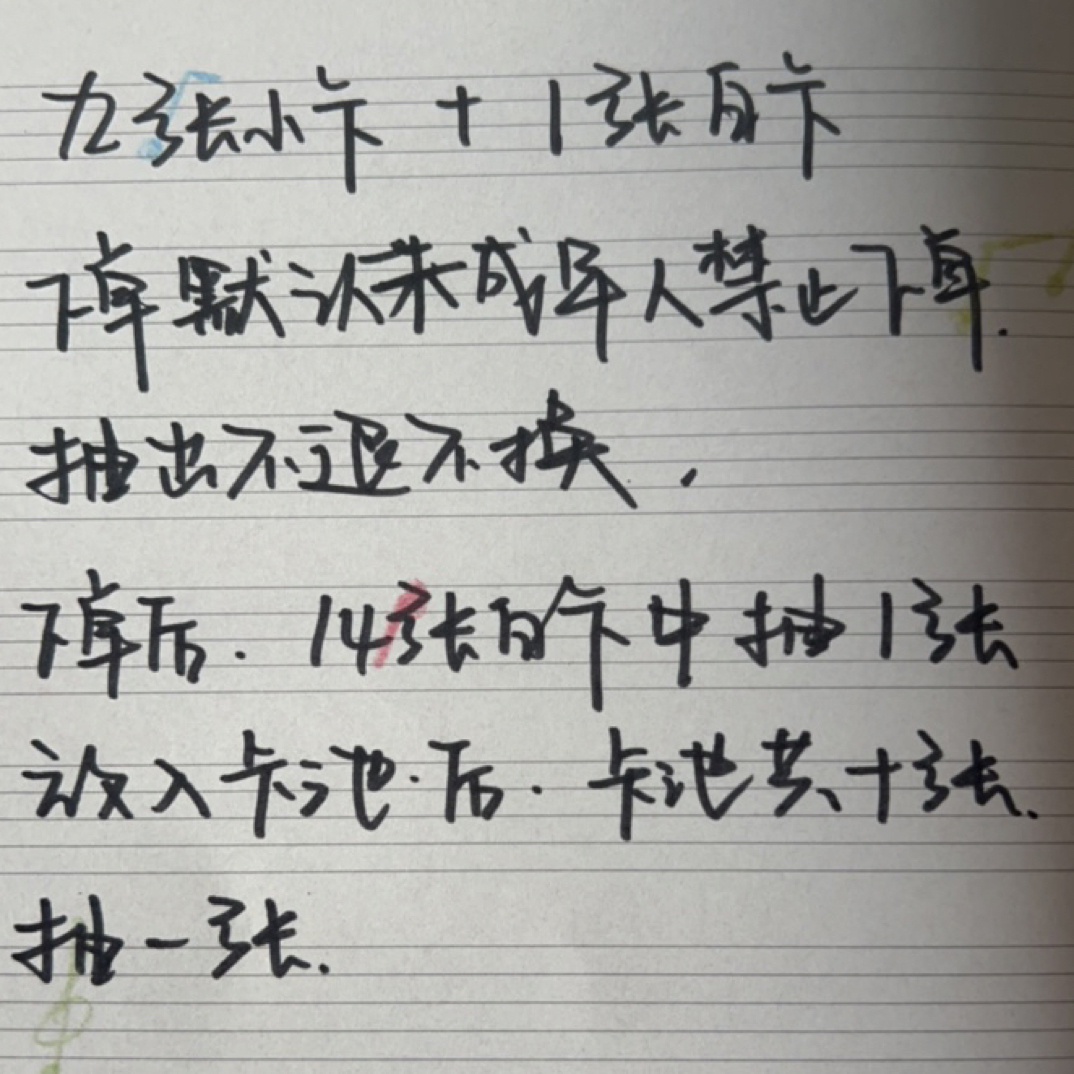 九张小卡 + 1张自卡
下单默认未成年人禁止下单.
抽出不退不换,
下单后. 14张自卡中抽1张
放入卡池.后. 卡池共十张.
抽一张.